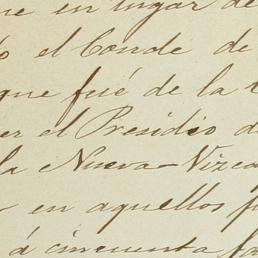 ne en lugar de
el Conde de
que fué de la
er el Presidio d
la Nueva-Vizca
en aquellos p
á cincuenta fa